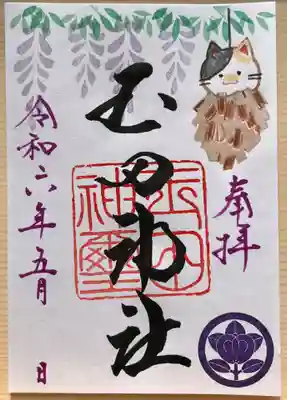 奉拝
玉田神社
玉田神社
令和六年五月 日